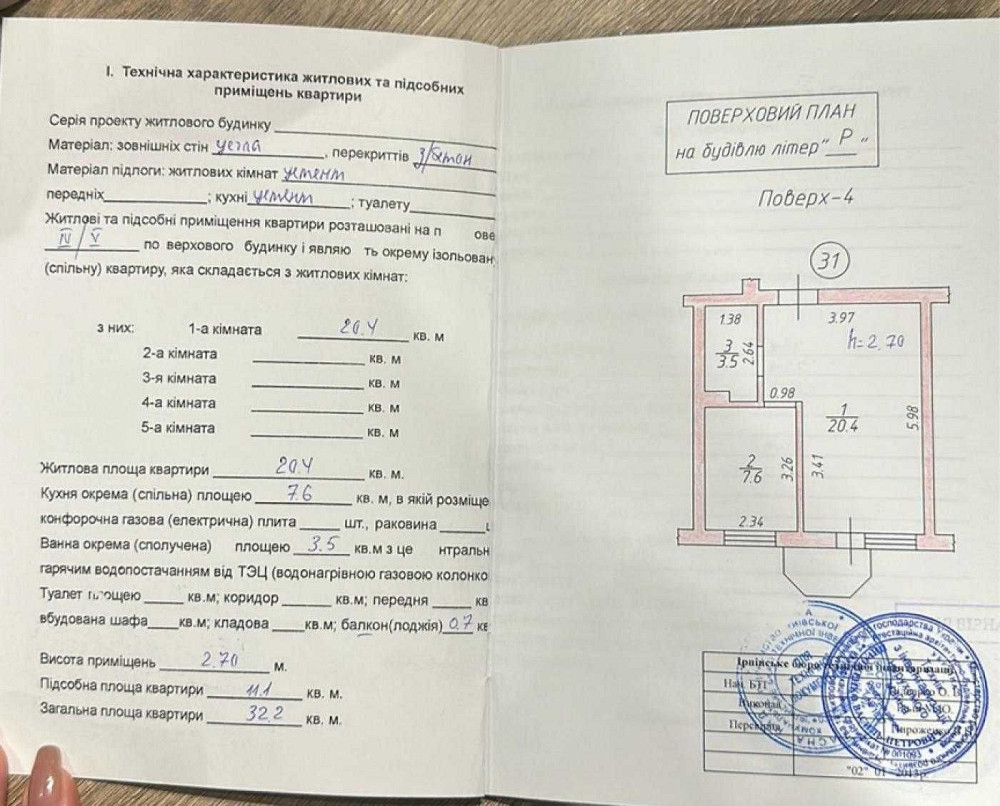 I. Технічна характеристика житлових та підсобних
приміщень квартири
Серія проекту житлового будинку
Матеріал: зовнішніх стін цегла, перекриттів з/бетон
Матеріал підлоги: житлових кімнат цемент
передніх ; кухні цемент ; туалету
Житлові та підсобні приміщення квартири розташовані на п ове
IV / V по верхового будинку і являю ть окрему ізольован
(спільну) квартиру, яка складається з житлових кімнат:
з них: 1-а кімната 20.4 кв. м
2-а кімната кв. м
3-я кімната кв. м
4-а кімната кв. м
5-а кімната кв. м
Житлова площа квартири 20.4 кв. м.
Кухня окрема (спільна) площею 7.6 кв. м, в якій розміще
конфорочна газова (електрична) плита шт., раковина
Ванна окрема (сполучена) площею 3.5 кв.м з це нтральн
гарячим водопостачанням від ТЭЦ (водонагрівною газовою колонко
Туалет площею кв.м; коридор кв.м; передня кв
вбудована шафа кв.м; кладова кв.м; балкон(лоджія) 0.7 кв
Висота приміщень 2.70 м.
Підсобна площа квартири 11.1 кв. м.
Загальна площа квартири 32.2 кв. м.
ПОВЕРХОВИЙ ПЛАН
на будівлю літер "Р"
Поверх-4
31
1.38
3.97
3
3.5
2.64
h=2.70
0.98
1
20.4
5.98
2
7.6
3.26
3.41
2.34
Ірпінське бюро
Нач. БТІ
Виконав
Перевірив
"02" 01 2013р.